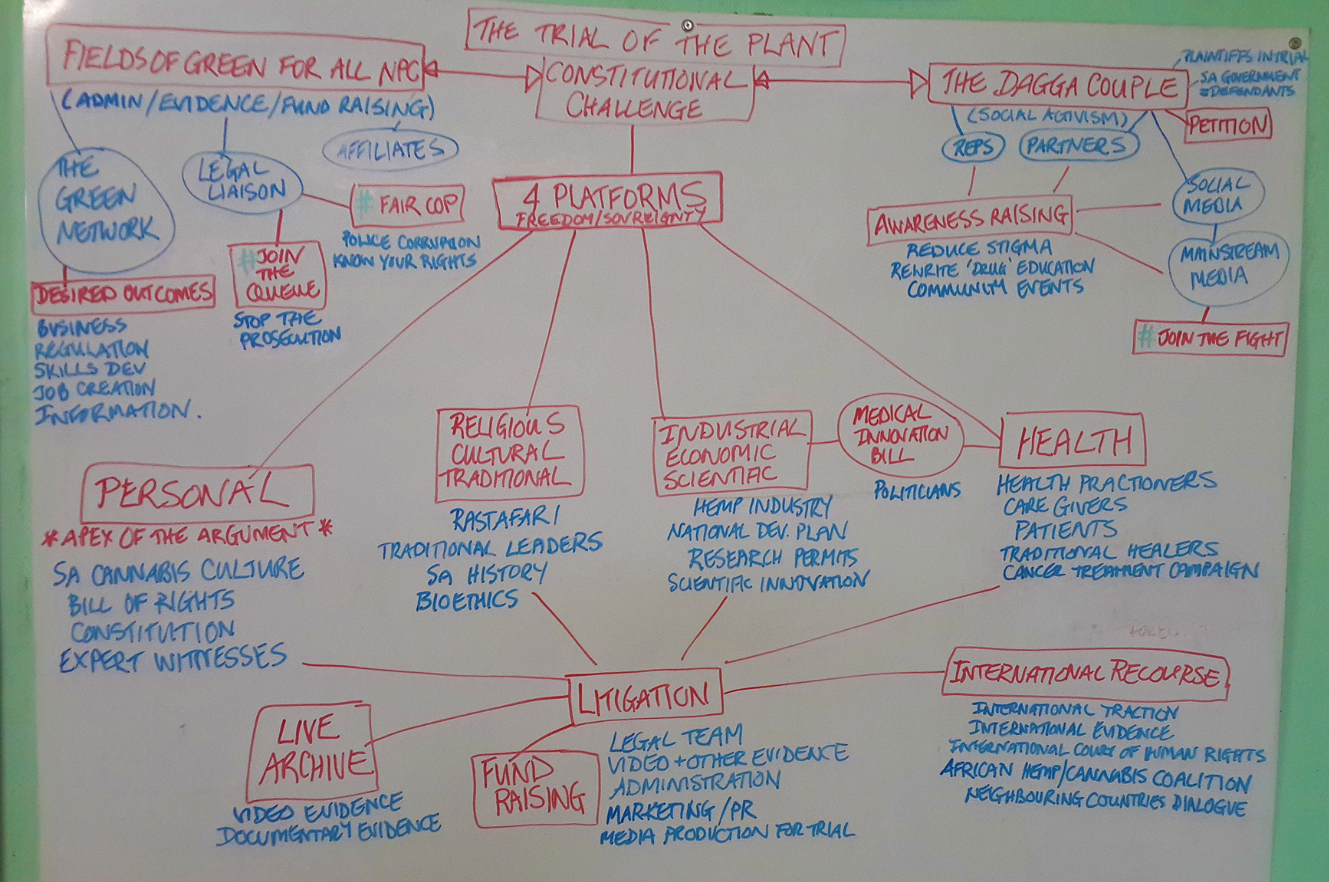 THE TRIAL OF THE PLANT
CONSTITUTIONAL
CHALLENGE
FIELDS OF GREEN FOR ALL NPC
(ADMIN/EVIDENCE/FUND RAISING)
AFFILIATES
THE
GREEN
NETWORK
LEGAL
LIAISON
# FAIR COP
POLICE CORRUPTION
KNOW YOUR RIGHTS
#JOIN
THE
QUEUE
STOP THE
PROSECUTION
DESIRED OUTCOMES
BUSINESS
REGULATION
SKILLS DEV
JOB CREATION
INFORMATION.
THE DAGGA COUPLE
PLAINTIFFS IN TRIAL
SA GOVERNMENT
=DEFENDANTS
PETITION
(SOCIAL ACTIVISM)
REPS
PARTNERS
SOCIAL
MEDIA
MAINSTREAM
MEDIA
# JOIN THE FIGHT
AWARENESS RAISING
REDUCE STIGMA
REWRITE 'DRUG' EDUCATION
COMMUNITY EVENTS
4 PLATFORMS
FREEDOM/SOVREIGNTY
PERSONAL
*APEX OF THE ARGUMENT*
SA CANNABIS CULTURE
BILL OF RIGHTS
CONSTITUTION
EXPERT WITNESSES
RELIGIOUS
CULTURAL
TRADITIONAL
RASTAFARI
TRADITIONAL LEADERS
SA HISTORY
BIOETHICS
INDUSTRIAL
ECONOMIC
SCIENTIFIC
HEMP INDUSTRY
NATIONAL DEV. PLAN
RESEARCH PERMITS
SCIENTIFIC INNOVATION
MEDICAL
INNOVATION
BILL
POLITICIANS
HEALTH
HEALTH PRACTIONERS
CARE GIVERS
PATIENTS
TRADITIONAL HEALERS
CANCER TREATMENT CAMPAIGN
LITIGATION
LEGAL TEAM
VIDEO + OTHER EVIDENCE
ADMINISTRATION
MARKETING/PR
MEDIA PRODUCTION FOR TRIAL
LIVE
ARCHIVE
VIDEO EVIDENCE
DOCUMENTARY EVIDENCE
FUND
RAISING
INTERNATIONAL RECOURSE
INTERNATIONAL TRACTION
INTERNATIONAL EVIDENCE
INTERNATIONAL COURT OF HUMAN RIGHTS
AFRICAN HEMP/CANNABIS COALITION
NEIGHBOURING COUNTRIES DIALOGUE